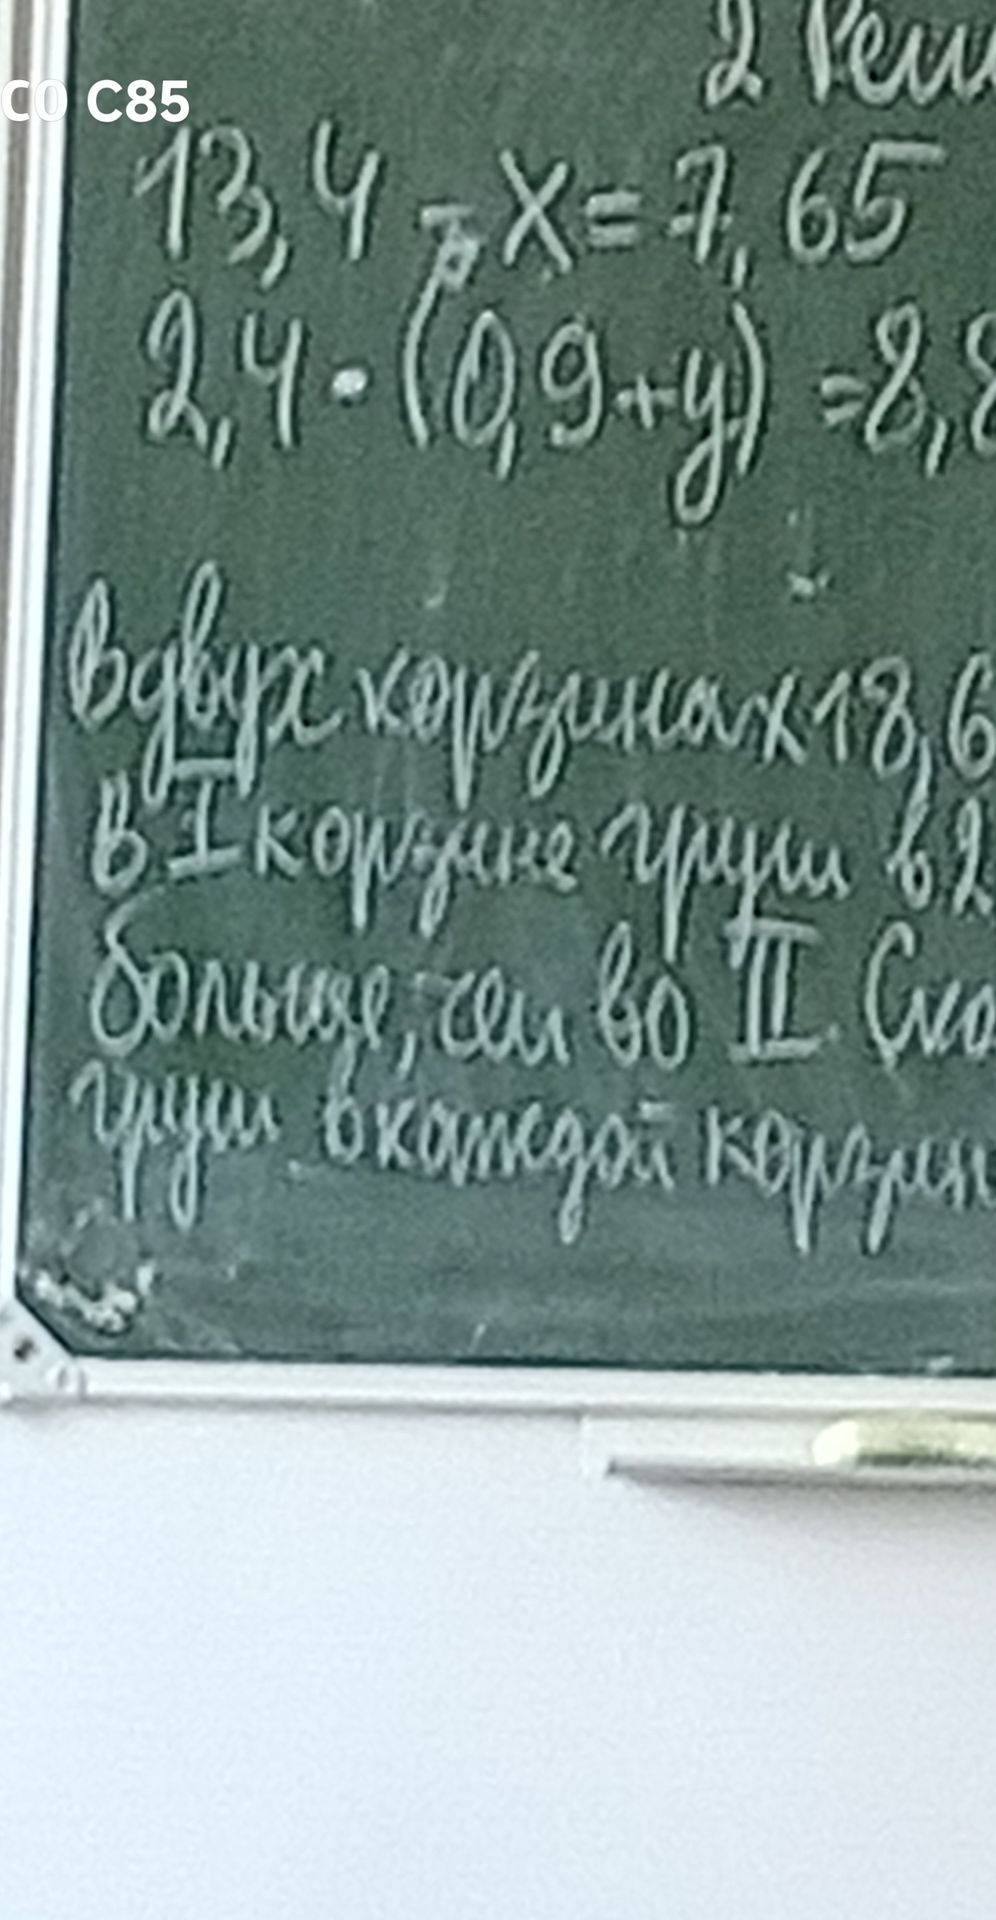 2 Реш
CO C85
13,4 - x = 7,65
2,4 · (0,9 + y) = 8,8
В двух корзинах 18,6
в I корзине груш в 2
больше, чем во II. Ско
груш в каждой корзин